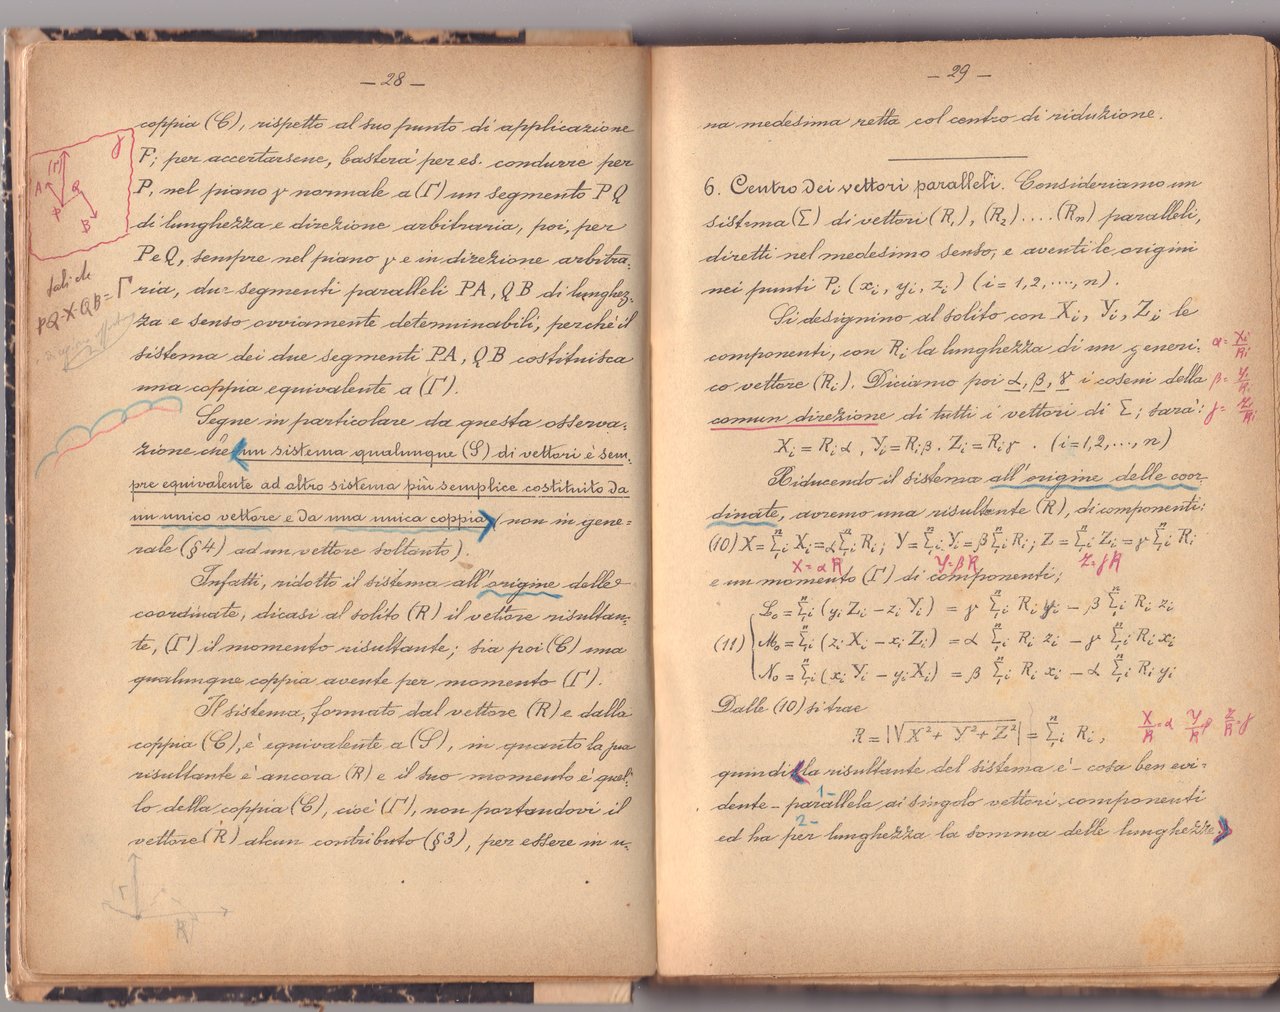 — 28 —
coppia (C), rispetto al suo punto di applicazione
P; per accertarsene, basterà per es. condurre per
P, nel piano γ normale a (Γ) un segmento PQ
di lunghezza e direzione arbitraria, poi, per
P e Q, sempre nel piano γ e in direzione arbitra-
ria, due segmenti paralleli PA, QB di lunghez-
za e senso ovviamente determinabili, perché il
sistema dei due segmenti PA, QB costituisca
una coppia equivalente a (Γ).
Segue in particolare da questa osserva-
zione che un sistema qualunque (S) di vettori è sem-
pre equivalente ad altro sistema più semplice costituito da
un unico vettore e da una unica coppia (non in gene-
rale (§4) ad un vettore soltanto).
Infatti, ridotto il sistema all'origine delle
coordinate, dicasi al solito (R) il vettore risultan-
te, (Γ) il momento risultante; sia poi (C) una
qualunque coppia avente per momento (Γ).
Il sistema, formato dal vettore (R) e dalla
coppia (C), è equivalente a (S), in quanto la sua
risultante è ancora (R) e il suo momento è quel-
lo della coppia (C), cioè (Γ), non portandovi il
vettore (R) alcun contributo (§3), per essere in u-
γ
(Γ)
A
Q
P
B
tali che
PQ·X·QB = Γ
Γ
R
— 29 —
na medesima retta col centro di riduzione.
6. Centro dei vettori paralleli. Consideriamo un
sistema (Σ) di vettori (R₁), (R₂) .... (Rn) paralleli,
diretti nel medesimo senso, e aventi le origini
nei punti Pi (xi, yi, zi) (i = 1,2,...., n).
Si designino al solito con Xi, Yi, Zi le
componenti, con Ri la lunghezza di un generi-
co vettore (Ri). Diciamo poi α, β, γ i coseni della
comun direzione di tutti i vettori di Σ; sarà:
α = Xi/Ri
β = Yi/Ri
γ = Zi/Ri
Xi = Ri α, Yi = Ri β. Zi = Ri γ . (i=1,2,...., n)
Riducendo il sistema all'origine delle coor-
dinate, avremo una risultante (R), di componenti:
(10) X = Σ₁ⁿi Xi = α Σ₁ⁿi Ri; Y = Σ₁ⁿi Yi = β Σ₁ⁿi Ri; Z = Σ₁ⁿi Zi = γ Σ₁ⁿi Ri
X = αR Y = βR Z = γR
e un momento (Γ) di componenti;
(11) { L₀ = Σ₁ⁿi (yi Zi – zi Yi) = γ Σ₁ⁿi Ri yi – β Σ₁ⁿi Ri zi
M₀ = Σ₁ⁿi (zi Xi – xi Zi) = α Σ₁ⁿi Ri zi – γ Σ₁ⁿi Ri xi
N₀ = Σ₁ⁿi (xi Yi – yi Xi) = β Σ₁ⁿi Ri xi – α Σ₁ⁿi Ri yi
Dalle (10) si trae
R = |√X² + Y² + Z²| = Σ₁ⁿi Ri, X/R = α Y/R = β Z/R = γ
quindi la risultante del sistema è – cosa ben evi-
1-
dente – parallela ai singoli vettori componenti
2-
ed ha per lunghezza la somma delle lunghezze